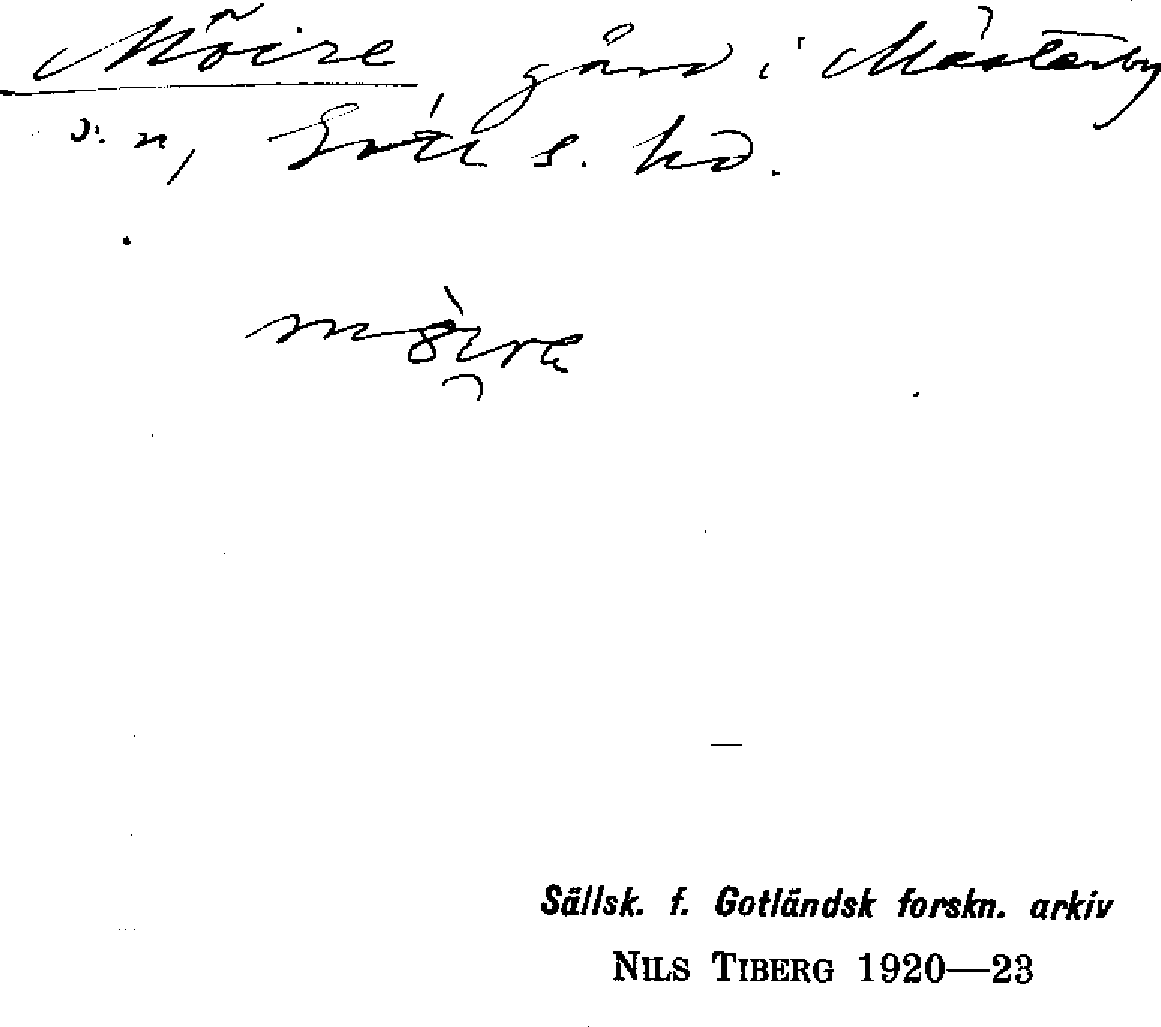 Möire gård i Mästerby
s: n, Gotl s. hd.
möire
Sällsk. f. Gotländsk forskn. arkiv
NILS TIBERG 1920—23